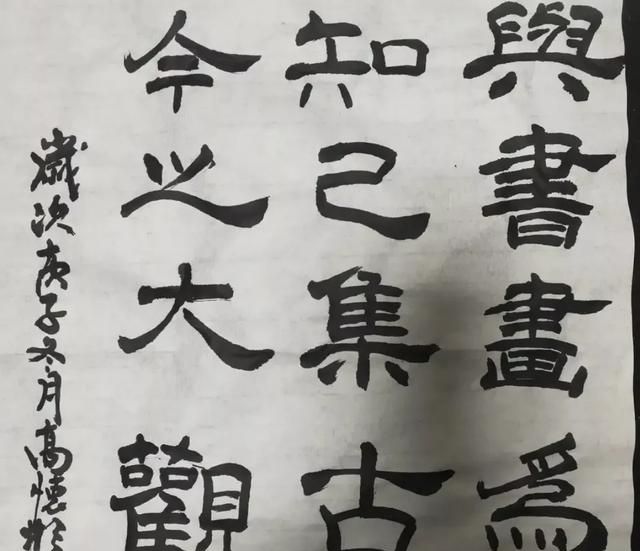 與書畫為
知己集古
今之大觀
歲次庚子冬月高懷